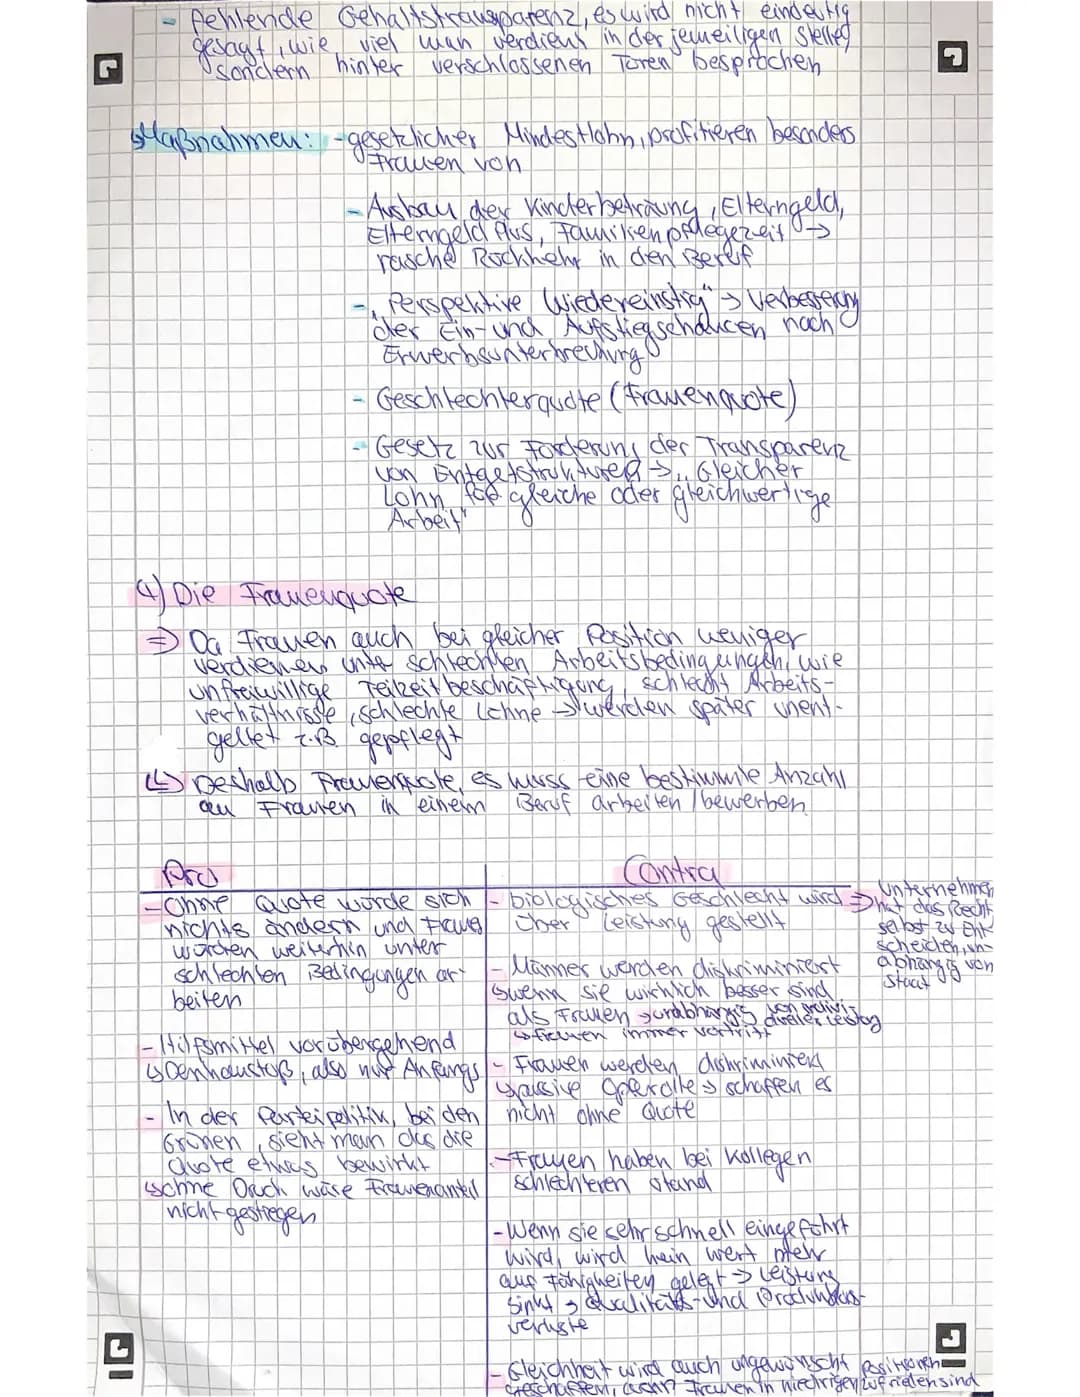 - fehlende Gehaltstransparenz, es wird nicht eindeutig
gesagt, wie viel man verdient in der jeweiligen Stelle,
sondern hinter verschlossenen Türen besprochen
↳Maßnahmen: - gesetzlicher Mindestlohn, profitieren besonders
Frauen von
- Ausbau der Kinderbeträung, Elterngeld,
Elterngeld Plus, Familienpflegezeit →
rasche Rückkehr in den Beruf
- "Perspektive Wiedereinstig" → Verbesserung
der Ein- und Aufstiegschancen nach
Erwerbsunterbrechung
- Geschlechterquote (Frauenquote)
- Gesetz zur Förderung der Transparenz
von Entgeltstrukturen → "Gleicher
Lohn für gleiche oder gleichwertige
Arbeit"
4) Die Frauenquote
⇒ Da Frauen auch bei gleicher Position weniger
verdienen unter schlechten Arbeitsbedingungen, wie
unfreiwillige Teilzeitbeschäftigung, schlecht Arbeits-
verhältnisse, schlechte Löhne → werden später unent-
geltet z.B. gepflegt
↳ Deshalb Frauenquote, es muss eine bestimmte Anzahl
an Frauen in einem Beruf arbeiten / bewerben
Pro
- Ohne Quote würde sich
nichts ändern und Frauen
würden weiterhin unter
schlechten Bedingungen ar-
beiten
- Hilfsmittel vorübergehend
↳ Denkanstoß, also nur Anfangs
- In der Parteipolitik, bei den
Grünen, sieht man das die
Quote etwas bewirkt
↳ohne Druck wäre Frauenanteil
nicht gestiegen
Contra
- biologisches Geschlecht wird
über Leistung gestellt
⇒ Unternehmen
hat das Recht
selbst zu ent-
scheiden, un-
abhängig von
Staat
- Männer werden diskriminiert
↳wenn sie wirklich besser sind
als Frauen → unabhängig von indivi-
dueller Leistung
↳ Frauen immer
- Frauen werden diskriminiert
↳ passive Opferrolle → schaffen es
nicht ohne Quote
- Frauen haben bei Kollegen
schlechteren Stand
- Wenn sie sehr schnell eingeführt
wird, wird kein wert mehr
auf Fähigkeiten gelegt → Leistung
sinkt → Qualitäts- und Produktions-
verluste
- Gleichheit wird auch ungewünscht Positionen
geschaffen, wenn Frauen in niedrigen zufrieden sind